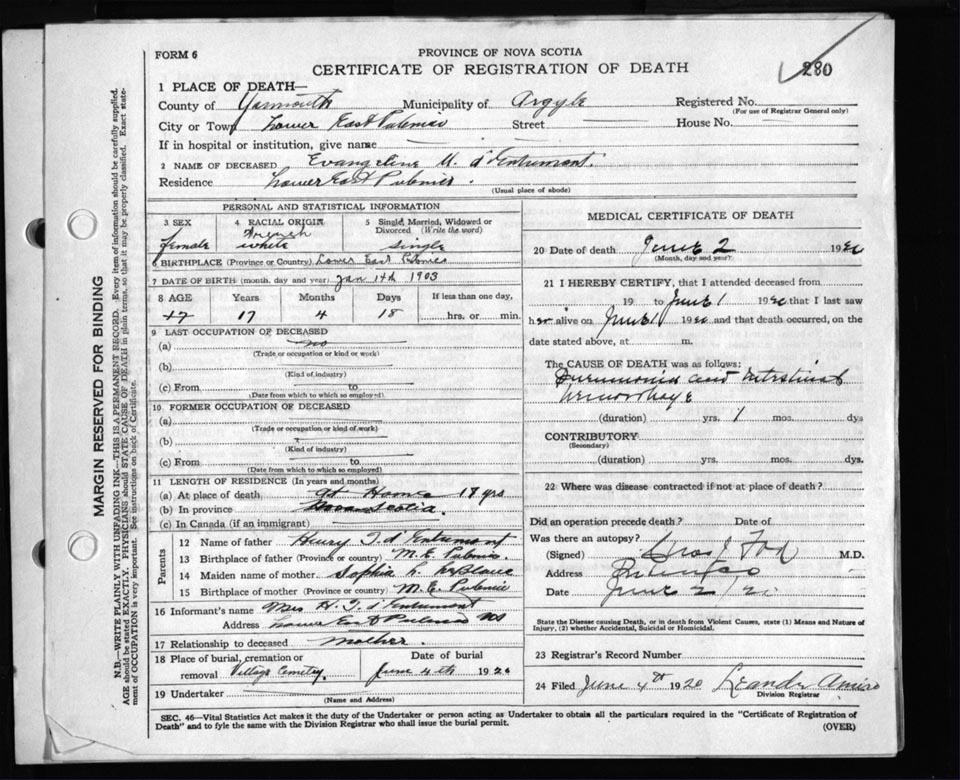 FORM 6
PROVINCE OF NOVA SCOTIA
CERTIFICATE OF REGISTRATION OF DEATH
280
1 PLACE OF DEATH—
County of Yarmouth Municipality of Argyle Registered No.
(For use of Registrar General only)
City or Town Lower East Pubnico Street House No.
If in hospital or institution, give name
2 NAME OF DECEASED Evangeline M. d'Entremont
Residence Lower East Pubnico.
(Usual place of abode)
PERSONAL AND STATISTICAL INFORMATION
3 SEX female
4 RACIAL ORIGIN French white
5 Single, Married, Widowed or Divorced (Write the word) single
6 BIRTHPLACE (Province or Country) Lower East Pubnico
7 DATE OF BIRTH (month, day and year) Jan 14th 1903
8 AGE Years Months Days If less than one day,
17 17 4 18 hrs. or min.
9 LAST OCCUPATION OF DECEASED
(a) no
(Trade or occupation or kind or work)
(b)
(Kind of industry)
(c) From to
(Date from which to which so employed)
10 FORMER OCCUPATION OF DECEASED
(a)
(Trade or occupation or kind of work)
(b)
(Kind of industry)
(c) From to
(Date from which to which so employed)
11 LENGTH OF RESIDENCE (In years and months)
(a) At place of death at Home 18 yrs
(b) In province Nova Scotia.
(c) In Canada (if an immigrant)
Parents
12 Name of father Henry T. d'Entremont
13 Birthplace of father (Province or country) M. E. Pubnico.
14 Maiden name of mother Sophia L. LeBlanc
15 Birthplace of mother (Province or country) M. E. Pubnico
16 Informant's name Mrs H. T. d'Entremont
Address Lower East Pubnico NS
17 Relationship to deceased mother.
18 Place of burial, cremation or removal Village Cemetry. Date of burial June 4th 1920
19 Undertaker
(Name and Address)
MEDICAL CERTIFICATE OF DEATH
20 Date of death June 2 1920
(Month, day and year)
21 I HEREBY CERTIFY, that I attended deceased from
19 to June 1 1920 that I last saw
her alive on June 1 1920 and that death occurred, on the
date stated above, at m.
The CAUSE OF DEATH was as follows:
Pneumonia and Intestinal
hemorrhage
(duration) yrs. 1 mos. dys
CONTRIBUTORY
(Secondary)
(duration) yrs. mos. dys.
22 Where was disease contracted if not at place of death?
Did an operation precede death? Date of
Was there an autopsy?
(Signed) Fox M.D.
Address Pubnico
Date June 2/20
State the Disease causing Death, or in death from Violent Causes, state (1) Means and Nature of
Injury, (2) whether Accidental, Suicidal or Homicidal.
23 Registrar's Record Number
24 Filed June 4th 1920 Leander Amiro
Division Registrar
SEC. 46—Vital Statistics Act makes it the duty of the Undertaker or person acting as Undertaker to obtain all the particulars required in the "Certificate of Registration of
Death" and to fyle the same with the Division Registrar who shall issue the burial permit.
(OVER)
MARGIN RESERVED FOR BINDING
N.B.—WRITE PLAINLY WITH UNFADING INK—THIS IS A PERMANENT RECORD. Every item of information should be carefully supplied.
AGE should be stated EXACTLY. PHYSICIANS should STATE CAUSE OF DEATH in plain terms, so that it may be properly classified. Exact state-
ment of OCCUPATION is very important. See instructions on back of Certificate.